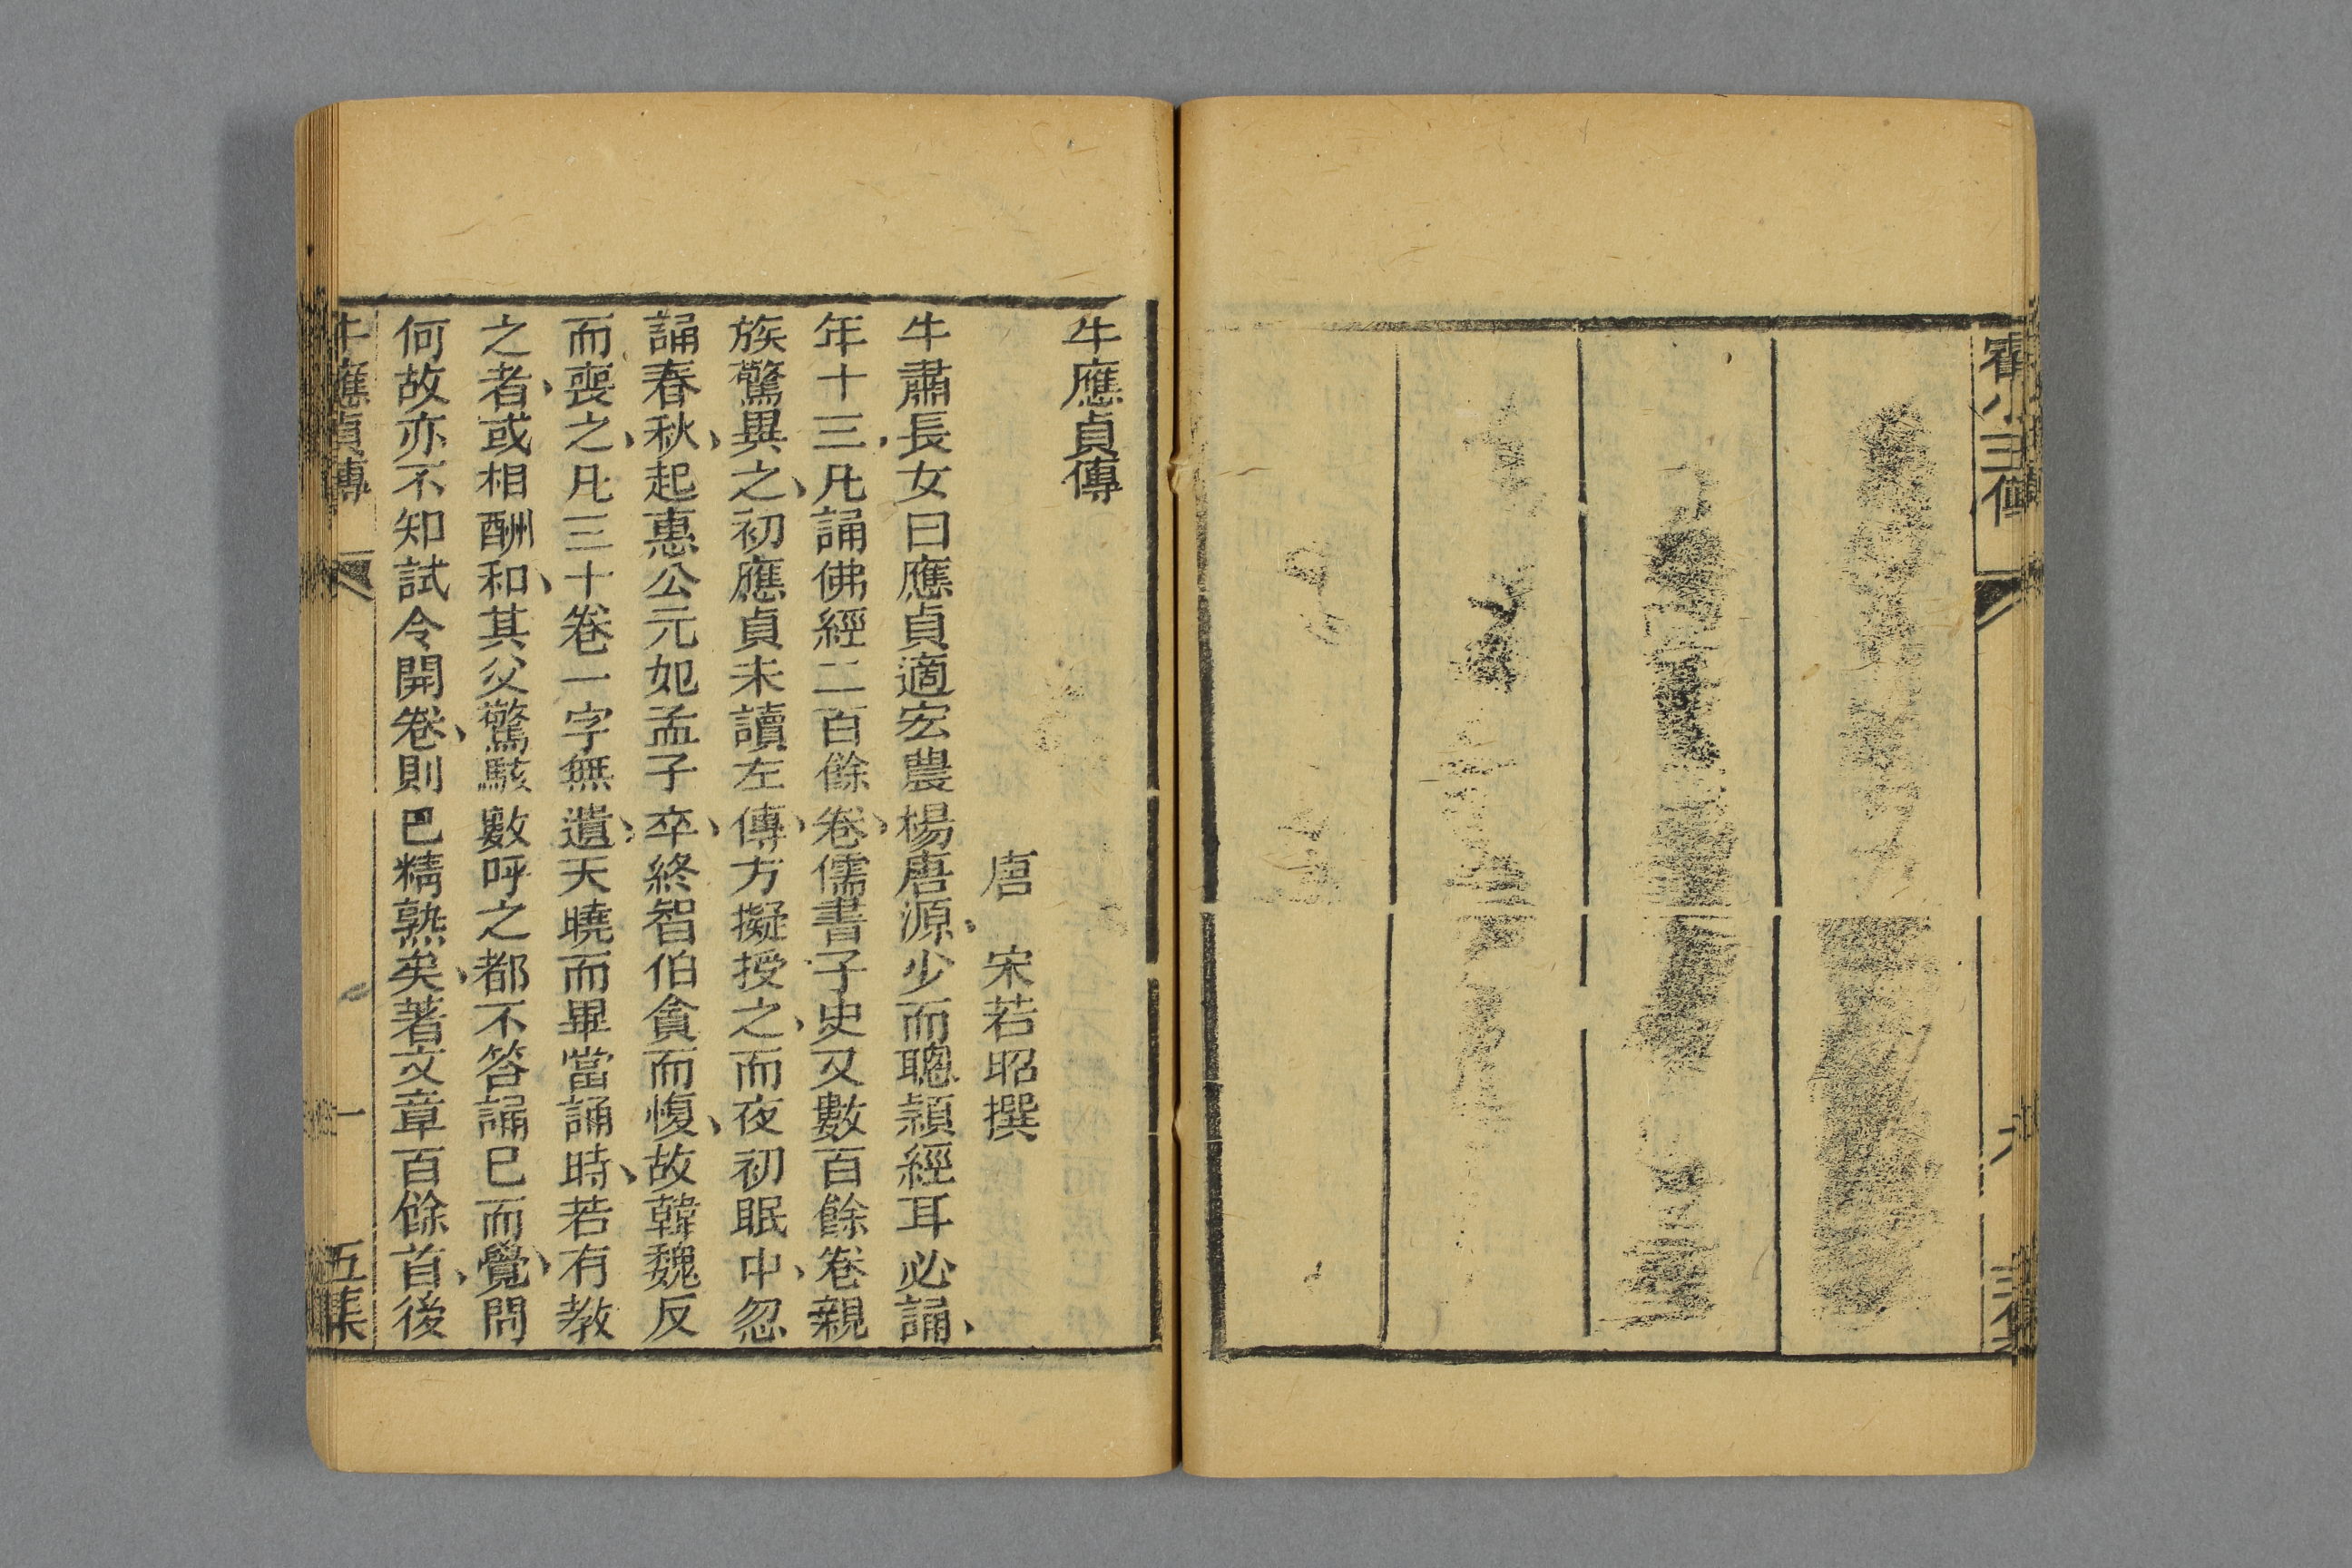 霍小玉傳
牛應貞傳
唐　宋若昭撰
牛肅長女曰應貞適宏農楊唐源、少而聰頴經耳必誦、
年十三、凡誦佛經二百餘卷、儒書子史又數百餘卷親
族驚異之、初應貞未讀左傳、方擬授之、而夜初眠中、忽
誦春秋、起惠公元妃孟子卒、終智伯貪而愎、故韓魏反
而喪之、凡三十卷一字無遺、天曉而畢當誦時、若有教
之者、或相酬和、其父驚駭數呼之都不答誦已而覺、問
何故亦不知試令開卷、則已精熟矣、著文章百餘首、後
牛應貞傳
一
五集